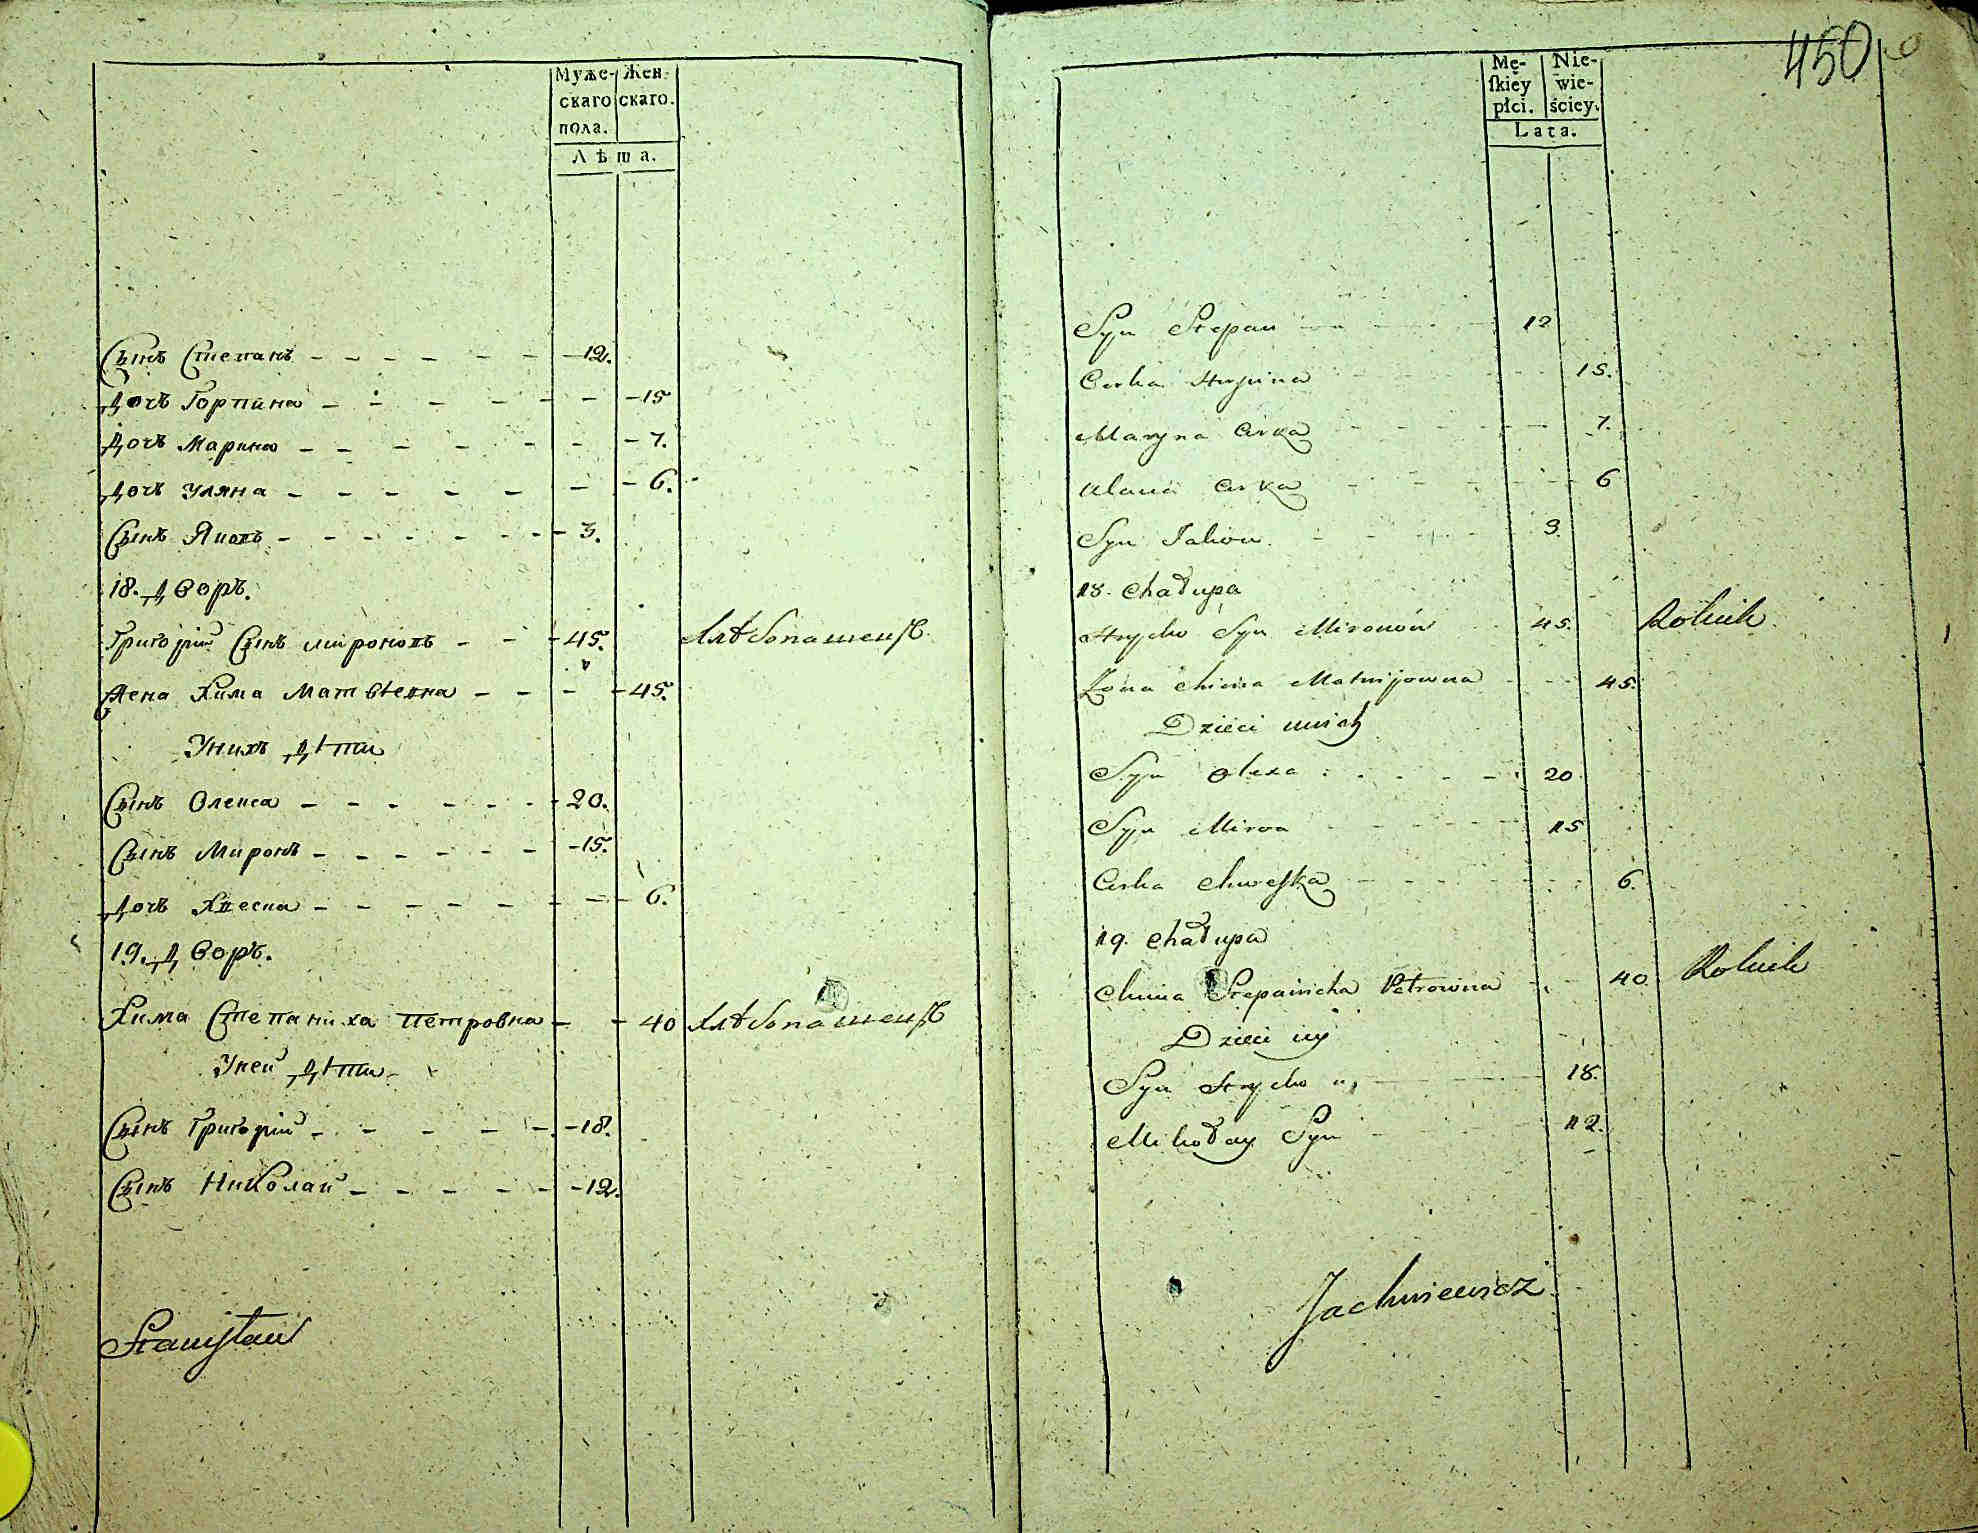 Муже- Жен.
скаго скаго.
пола.
Лѣта.
Сынъ Степанъ - - - - - - 12.
Дочъ Горпина - - - - - - 15
Дочъ Марина - - - - - - 7.
Дочъ Уляна - - - - - - 6.
Сынъ Яковъ - - - - - - 3.
18. Дворъ.
Григорій Сынъ Мироновъ - - - 45. Хлѣбопашецъ
Жена Хима Матвѣевна - - - 45.
Унихъ Дѣти
Сынъ Олекса - - - - - - 20.
Сынъ Миронъ - - - - - - 15.
Дочъ Хвеска - - - - - - 6.
19. Дворъ.
Хима Степаниха Петровна - - 40 Хлѣбопашецъ
Уней Дѣти
Сынъ Григорій - - - - - 18.
Сынъ Николай - - - - - 12.
Stanisław
450
Mę- Nie-
ſkiey wie-
płci. ściey.
Lata.
Syn Stepan 12
Corka Horpina 15.
Maryna Corka 7.
Ulana Corka 6
Syn Jakow 3.
18. Chałupa
Hryćko Syn Mironow 45. Rolnik
Żona Chima Matwijowna 45.
Dzieci unich
Syn Olexa 20
Syn Miron 15
Corka Chweſka 6.
19. Chałupa
Chima Stepanicha Petrowna 40 Rolnik
Dzieci iey
Syn Hryćko 18.
Mikołay Syn 12.
Jachniewicz